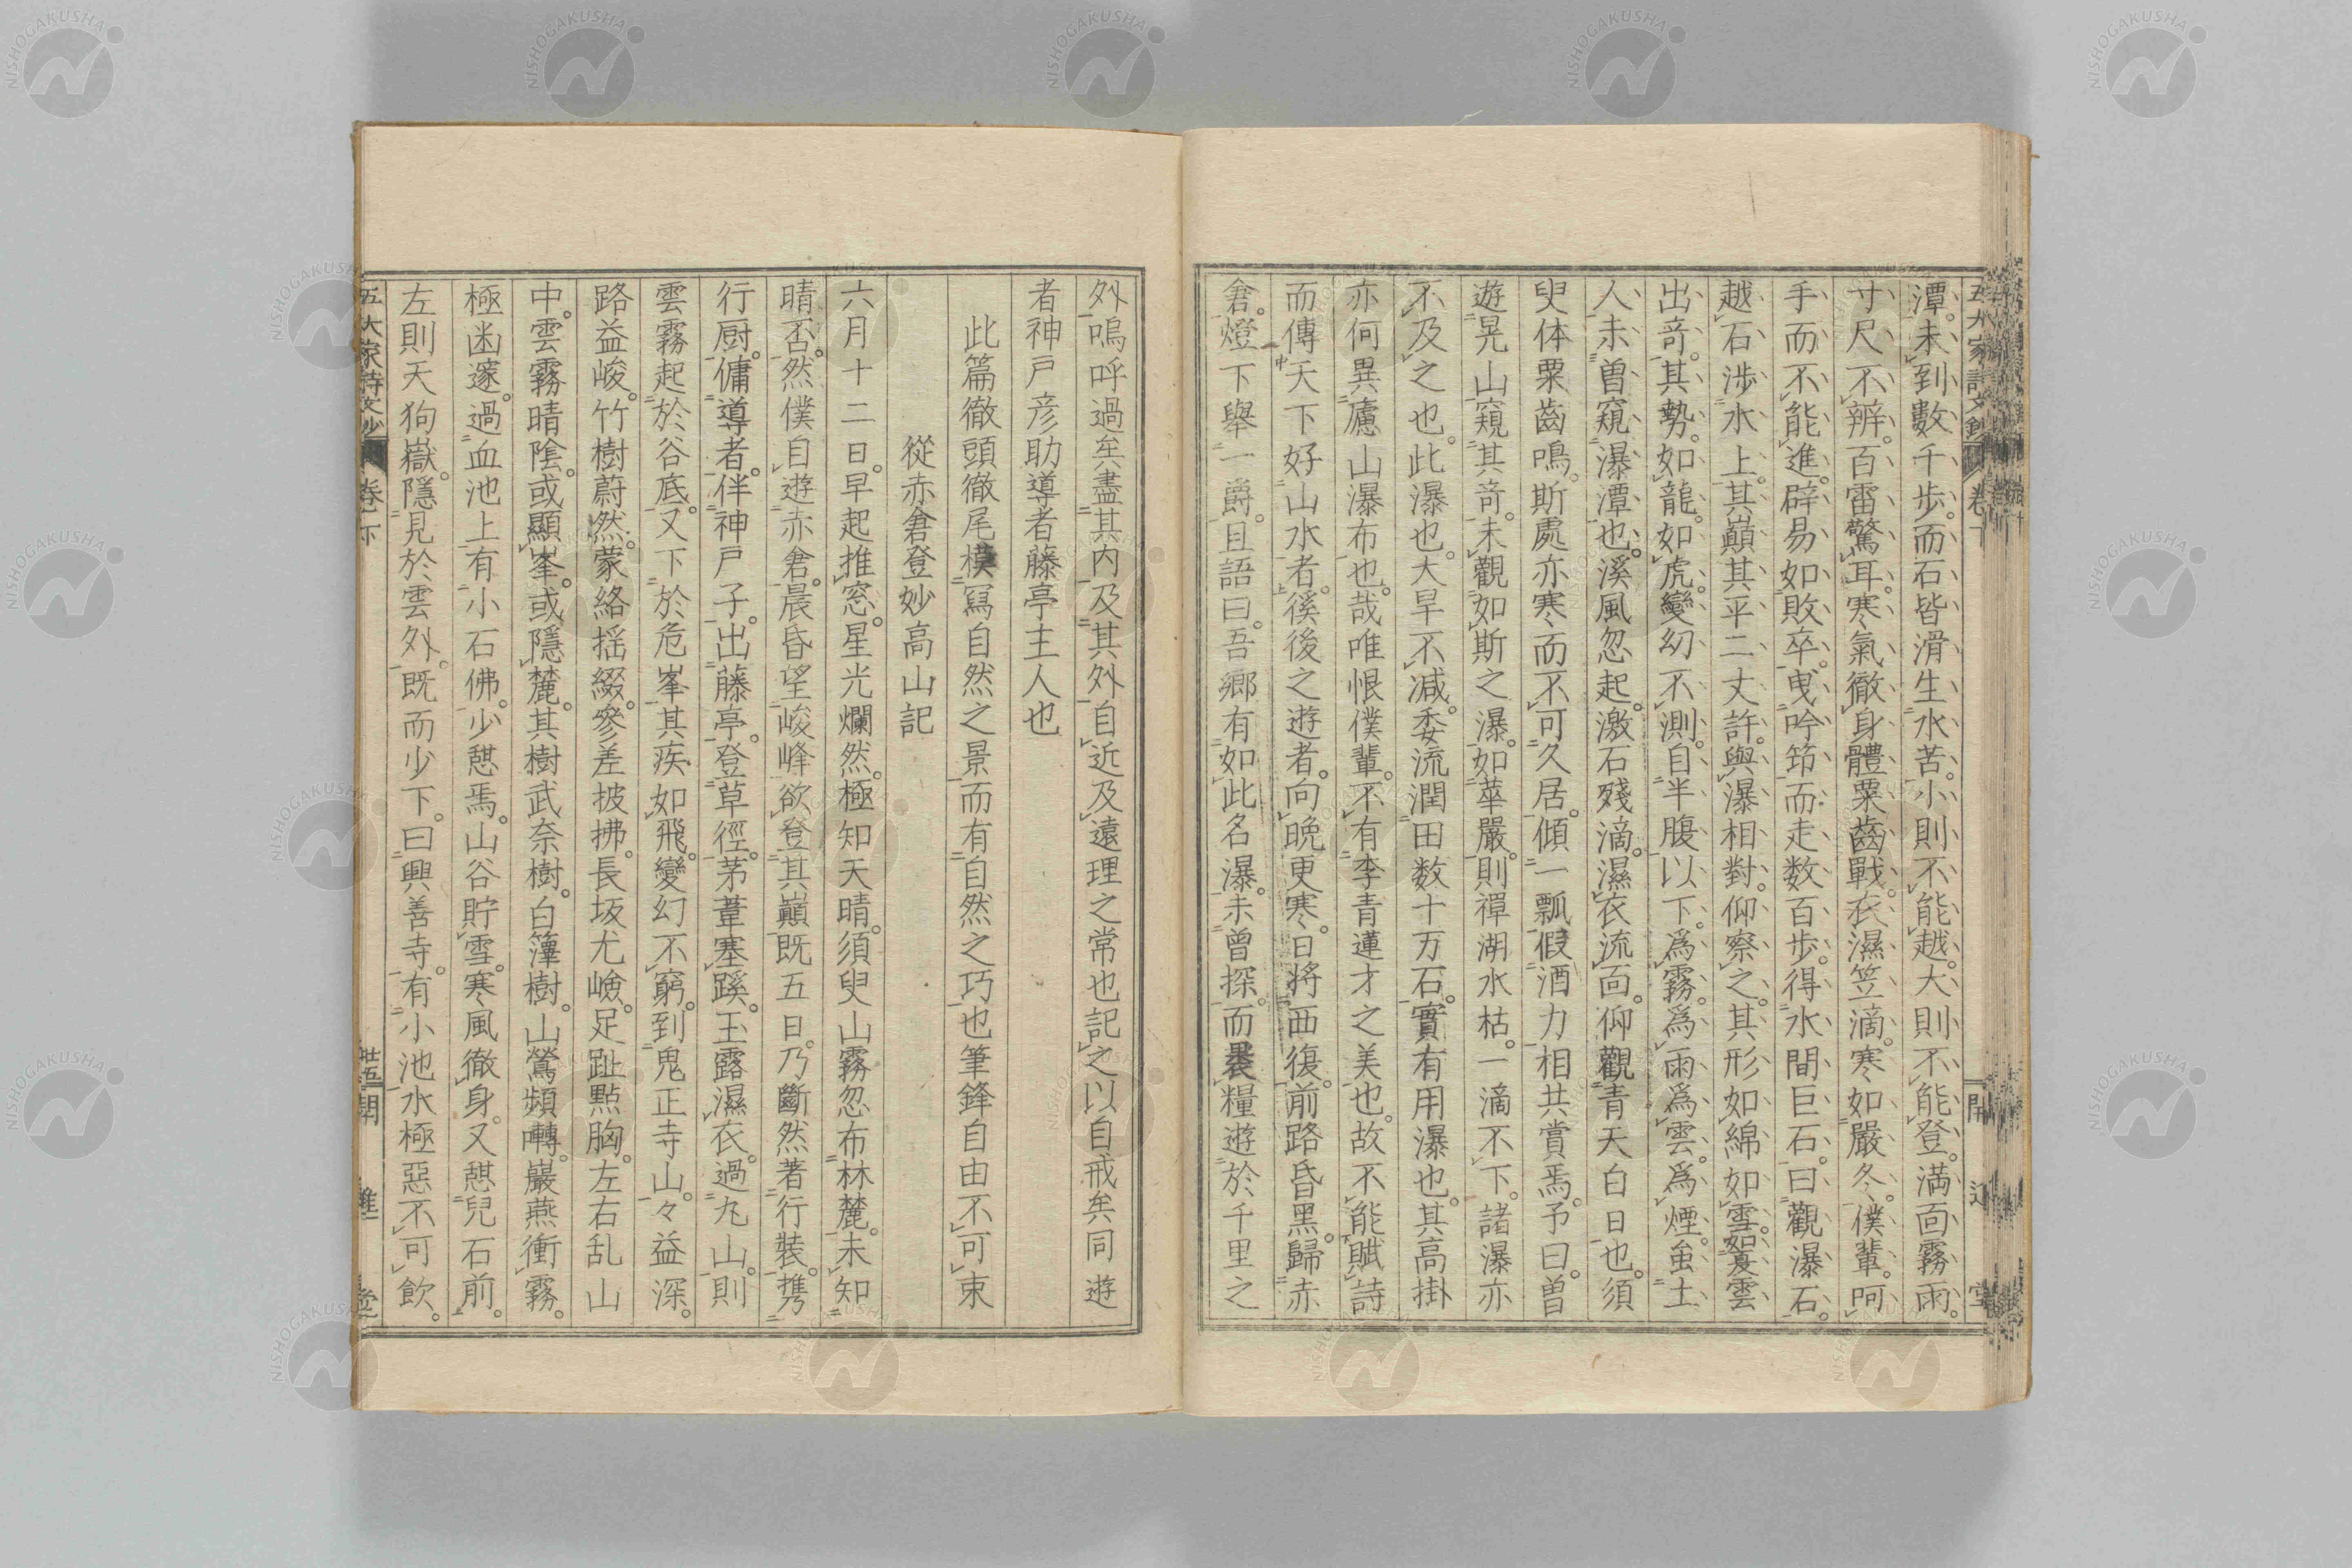 潭。未到數千歩。而石皆滑生水苦。小則不能越。大則不能登。満面霧雨。
寸尺不辨。百雷驚耳。寒氣徹身體粟齒戰。衣濕笠滴。寒如嚴冬。僕輩。呵
手而不能進。辟易如敗卒。曳吟筇而走数百歩。得水間巨石。曰觀瀑石。
越石渉水上。其巓其平二丈許。與瀑相對。仰察之。其形如綿如雪。如夏雲
出奇。其勢。如龍。如虎。變幻不測。自半腹以下。爲霧。爲雨爲雲。爲煙。虽土
人未曽窺瀑潭也。溪風忽起。激石殘滴。濕衣流面。仰觀青天白日也。須
臾体粟齒鳴。斯處亦寒而不可久居。傾一瓢假酒力相共賞焉。予曰。曽
遊晃山窺其奇。未觀如斯之瀑。如華嚴。則禪湖水枯。一滴不下。諸瀑亦
不及之也。此瀑也。大旱不減。委流潤田数十万石。實有用瀑也。其高掛
亦何異廬山瀑布也。哉唯恨僕輩。不有李青蓮才之美也。故不能賦詩
而傳天下好山水者。徯後之遊者。向晩更寒。日將西復。前路昏黒。歸赤
倉。燈下舉一爵。且語曰。吾郷有如此名瀑。未曽探。而褁糧遊於千里之
外。嗚呼過矣盡其内及其外自近及遠理之常也記之以自戒矣同遊
者神戸彦助導者藤亭主人也
此篇徹頭徹尾模寫自然之景而有自然之巧也筆鋒自由不可束
從赤倉登妙高山記
六月十二日。早起推窓。星光爛然。極知天晴。須臾山霧忽布林麓。未知
晴否。然僕自遊赤倉。晨昏望峻峰欲登其巓既五日。乃斷然著行裝。携
行厨。傭導者。伴神戸子。出藤亭。登草徑。茅葦塞蹊。玉露濕衣。過九山。則
雲霧起於谷底。又下於危峯其疾如飛。變幻不窮。到鬼正寺山。々益深。
路益峻。竹樹蔚然。蒙絡揺綴。參差披拂。長坂尤嶮。足趾點胸。左右乱山
中。雲霧晴陰。或顯峯。或隱麓。其樹武奈樹。白籜樹。山鶯頻囀。巖燕衝霧。
極幽邃。過血池上有小石佛。少憇焉。山谷貯雪。寒風徹身。又憇兒石前。
左則天狗嶽。隱見於雲外。既而少下。曰興善寺。有小池水極惡不可飲。